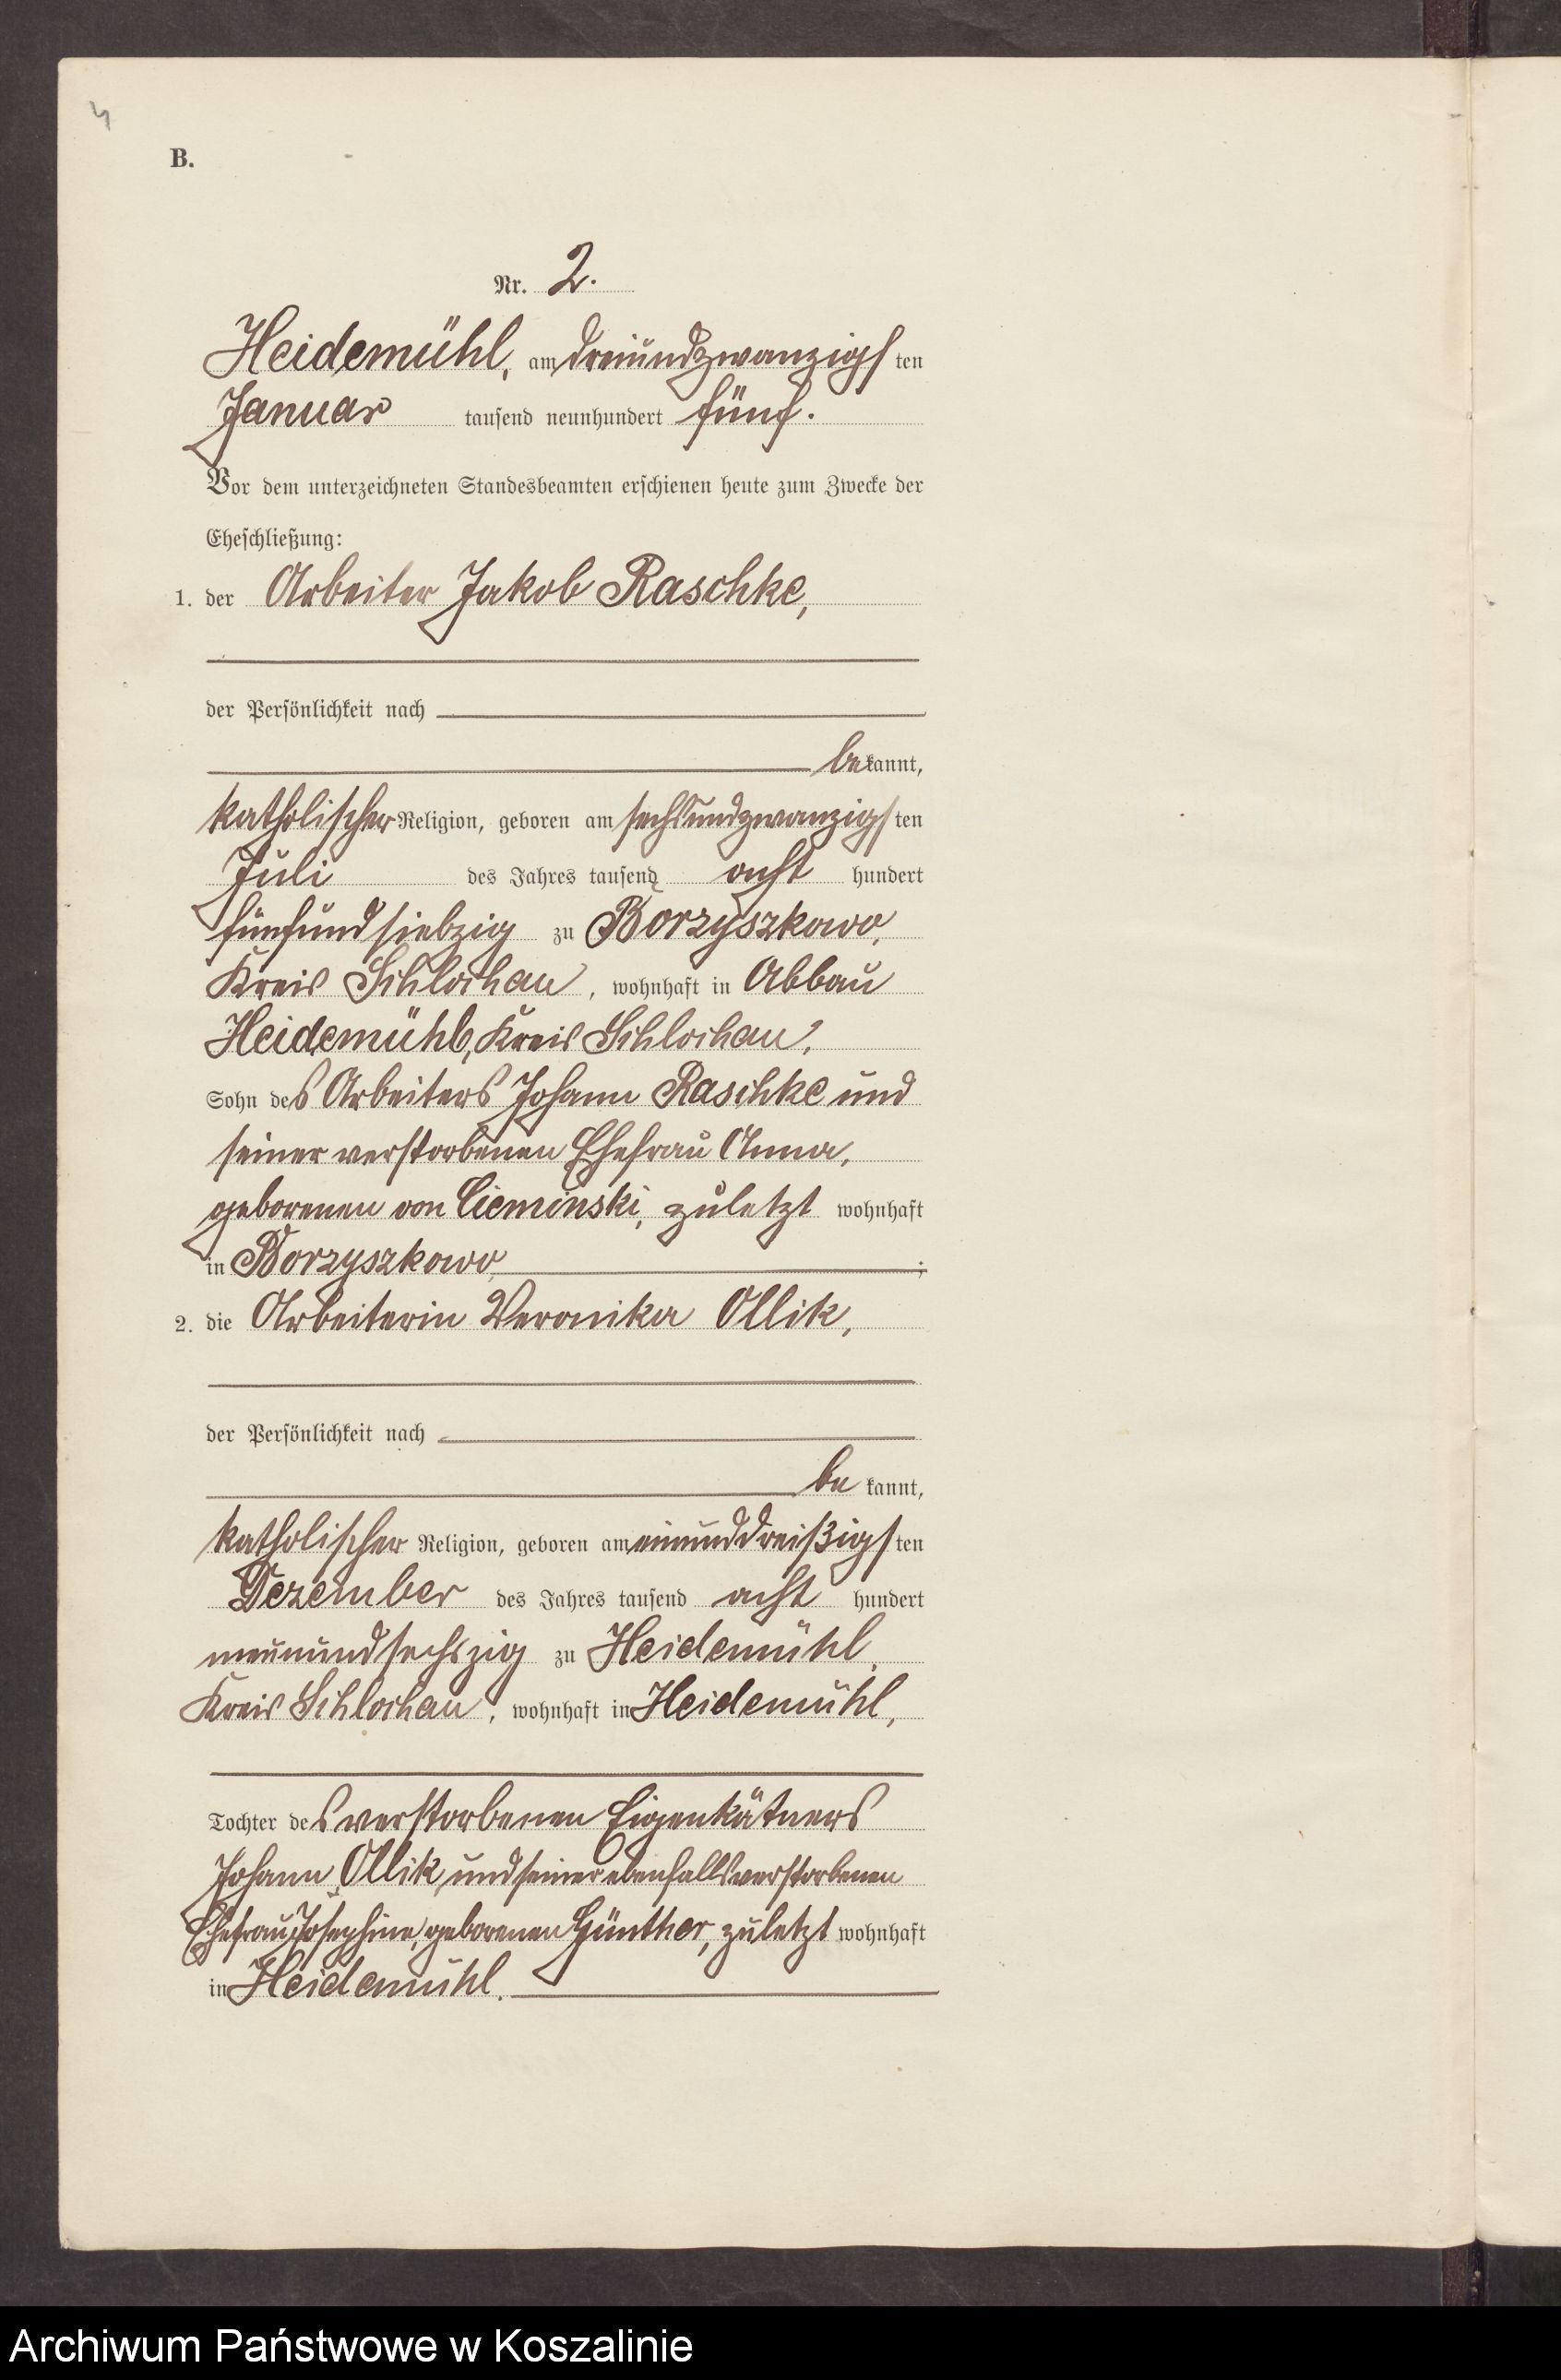 4
B.
Nr. 2.
Heidemühl, am dreiundzwanzigsten
Januar tausend neunhundert fünf.
Vor dem unterzeichneten Standesbeamten erschienen heute zum Zwecke der
Eheschließung:
1. der Arbeiter Jakob Raschke,
der Persönlichkeit nach
bekannt,
katholischer Religion, geboren am sechsundzwanzigsten
Juli des Jahres tausend acht hundert
fünfundsiebzig zu Borzyszkowo,
Kreis Schlochau, wohnhaft in Abbau
Heidemühl, Kreis Schlochau,
Sohn des Arbeiters Johann Raschke und
seiner verstorbenen Ehefrau Anna,
geborenen von Cieminski, zuletzt wohnhaft
in Borzyszkowo;
2. die Arbeiterin Veronika Ollik,
der Persönlichkeit nach
bekannt,
katholischer Religion, geboren am einunddreißigsten
Dezember des Jahres tausend acht hundert
neunundsechszig zu Heidemühl,
Kreis Schlochau, wohnhaft in Heidemühl,
Tochter des verstorbenen Eigenkätners
Johann Ollik und seiner ebenfalls verstorbenen
Ehefrau Josephine, geborenen Günther, zuletzt wohnhaft
in Heidemühl.
Archiwum Państwowe w Koszalinie